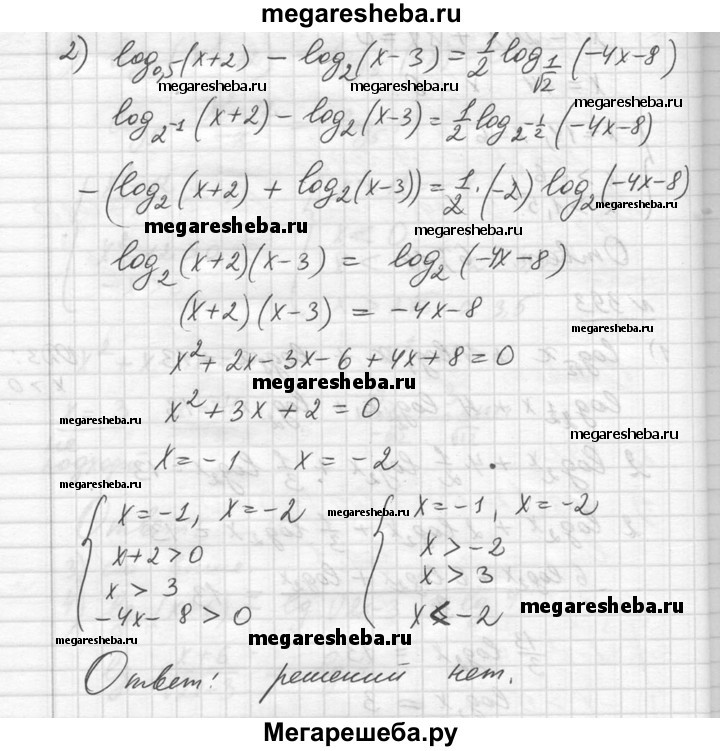 megaresheba.ru
2) log_{0,5} (x+2) - log_2 (x-3) = \frac{1}{2} log_{\frac{1}{\sqrt{2}}} (-4x-8)
megaresheba.ru megaresheba.ru megaresheba.ru
log_{2^{-1}} (x+2) - log_2 (x-3) = \frac{1}{2} log_{2^{-\frac{1}{2}}} (-4x-8)
-(log_2 (x+2) + log_2 (x-3)) = \frac{1}{2} · (-2) log_2 (-4x-8)
megaresheba.ru megaresheba.ru megaresheba.ru
log_2 (x+2)(x-3) = log_2 (-4x-8)
(x+2)(x-3) = -4x-8
megaresheba.ru
x^2 + 2x - 3x - 6 + 4x + 8 = 0
megaresheba.ru
x^2 + 3x + 2 = 0
megaresheba.ru megaresheba.ru
x = -1 x = -2
megaresheba.ru
x = -1, x = -2
x+2 > 0
x > 3
-4x - 8 > 0
megaresheba.ru
x = -1, x = -2
x > -2
x > 3
x < -2
megaresheba.ru
megaresheba.ru megaresheba.ru megaresheba.ru
Ответ: решений нет.
Мегарешеба.ру